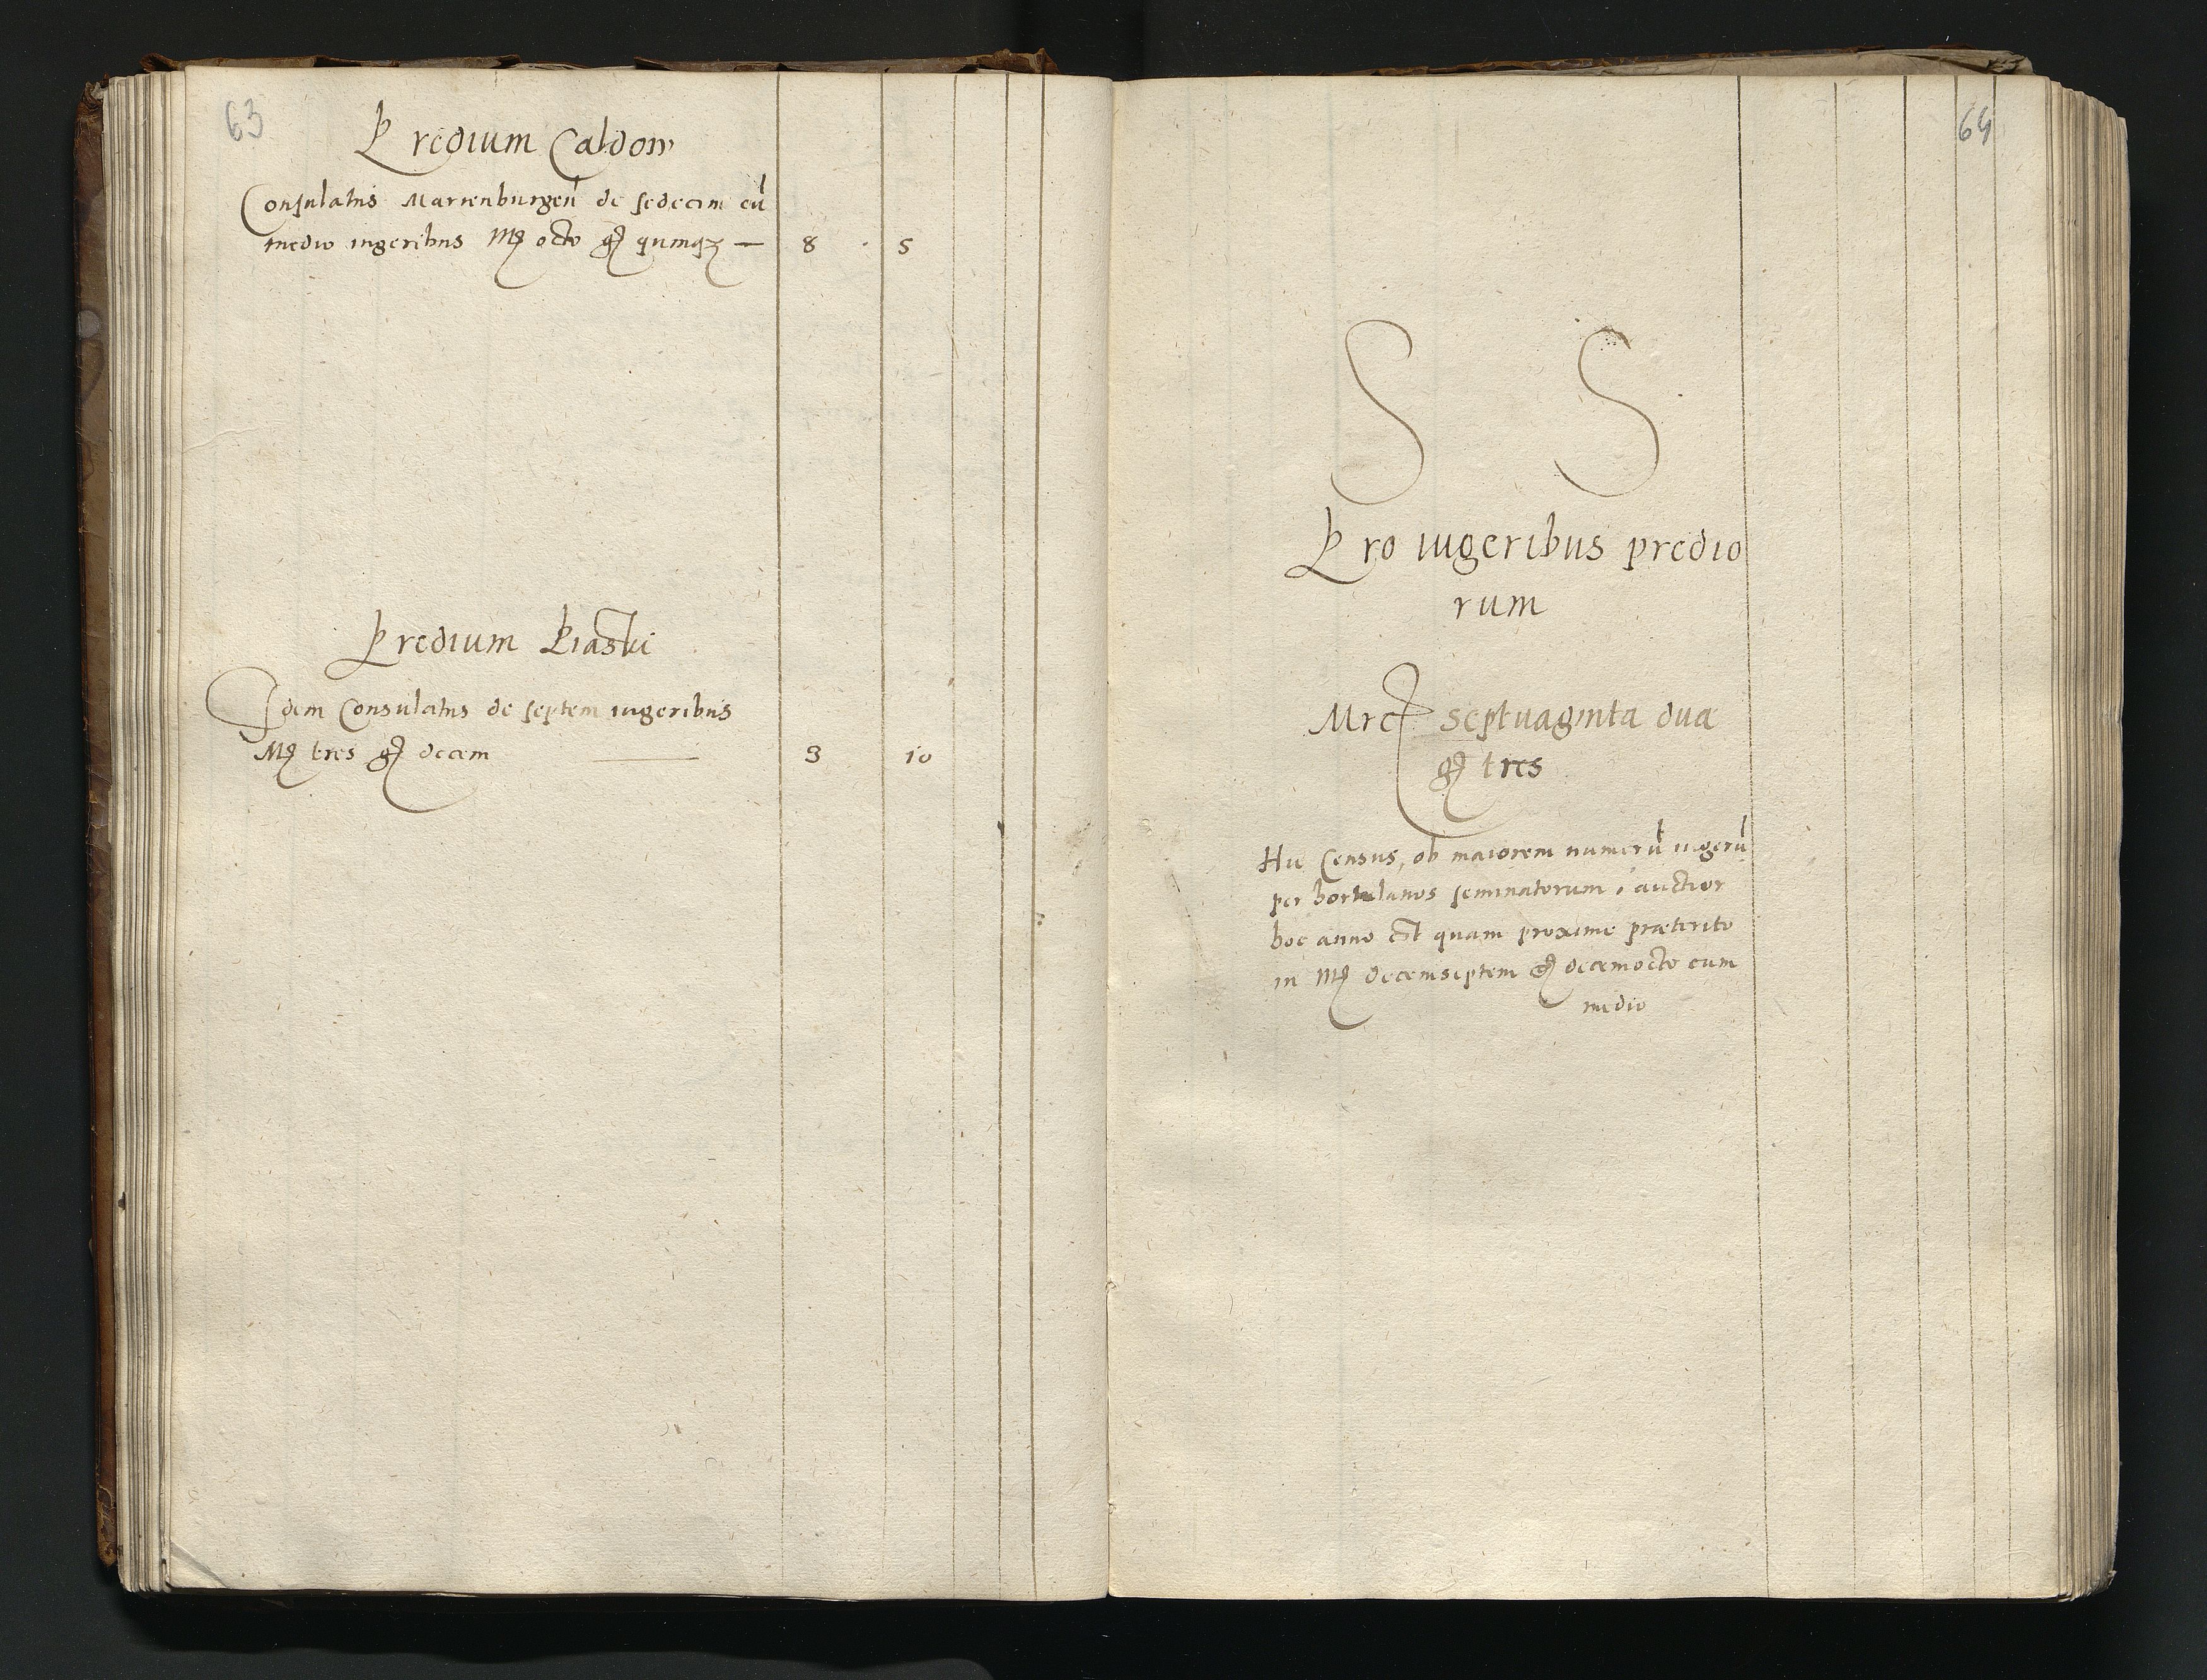 63
Predium Caldow
Consulatus Marienburgeñ de sedecim cū
medio iugeribus Mҙ octo gҙ quinqҙ — 8 5
Predium Piaski
Idem Consulatus de septem iugeribus
Mҙ tres gҙ decem — 3 10
64
S S
Pro iugeribus predio
rum
Mrc septuaginta dua
gҙ tres
Hic Census, ob maiorem numerū iugerū
per hortulanos seminatorum, auctior
hoc anno est quam proxime præterito
in Mҙ decemseptem gҙ decemocto cum
medio